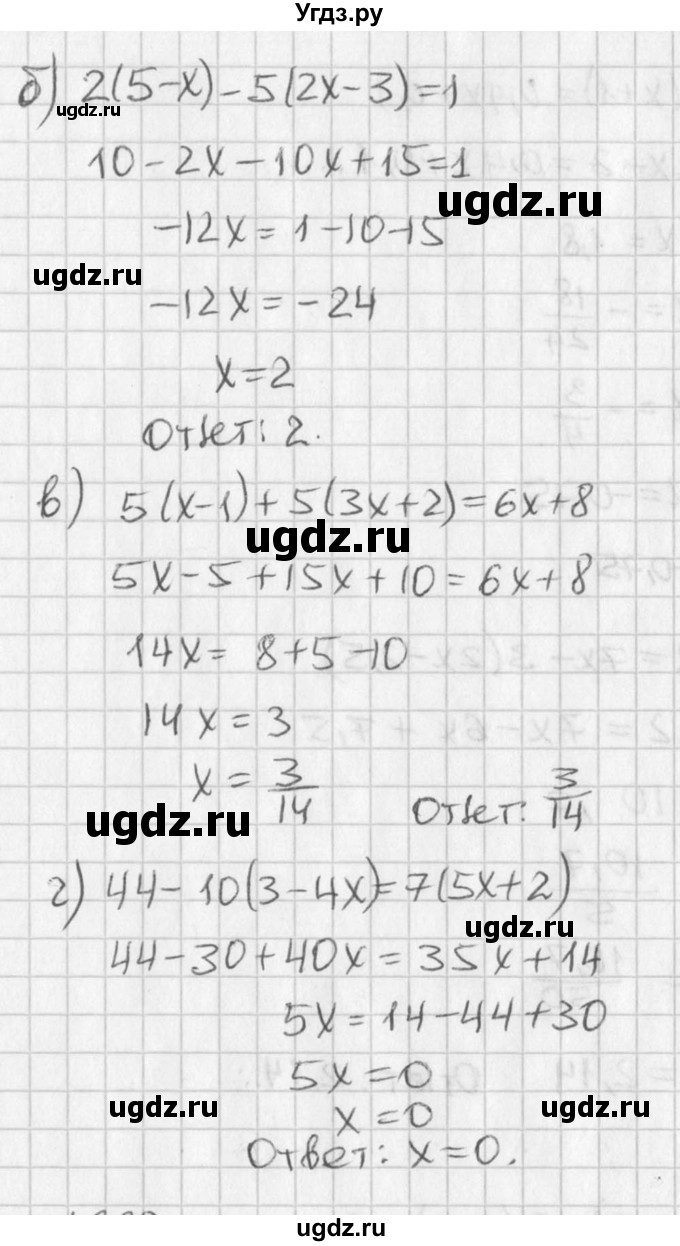 Угдз.ру
б) 2(5-x)-5(2x-3)=1
ugdz.ru
10-2x-10x+15=1
ugdz.ru
-12x=1-10-15
ugdz.ru
-12x=-24
x=2
Ответ: 2.
в) 5(x-1)+5(3x+2)=6x+8
ugdz.ru
5x-5+15x+10=6x+8
14x=8+5-10
14x=3
x=3/14 Ответ: 3/14
ugdz.ru
г) 44-10(3-4x)=7(5x+2)
ugdz.ru
44-30+40x=35x+14
5x=14-44+30
5x=0
ugdz.ru ugdz.ru
x=0
Ответ: x=0.
ugdz.ru